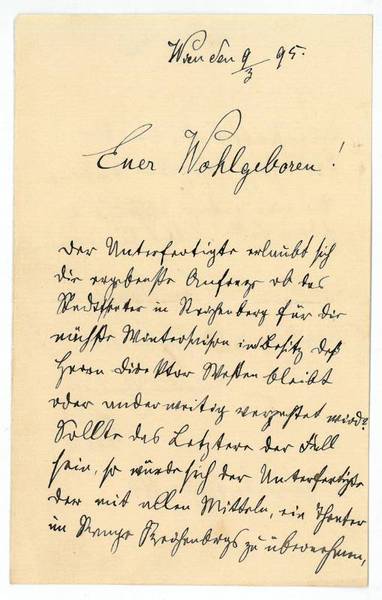 Wien den 9/3 95.
Euer Wohlgeboren!
Der Unterfertigte erlaubt sich
die ergebenste Anfrage ob das
Stadttheater in Reichenberg für die
nächste Wintersaison im Besitz des
Herrn Direktor Westen bleibt
oder anderweitig verpachtet wird?
Sollte das Letztere der Fall
sein, so würde sich der Unterfertigte
der mit allen Mitteln, ein Theater
im Range Reichenbergs zu übernehmen,